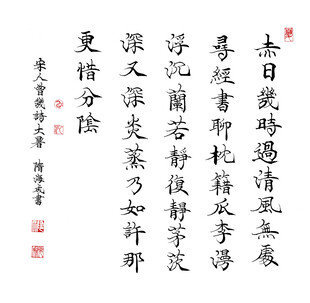 赤日幾時過清風無處
尋經書聊枕籍瓜李漫
浮沉蘭若靜復靜茅茨
深又深炎蒸乃如許那
更惜分陰
宋人曾幾詩大暑 書